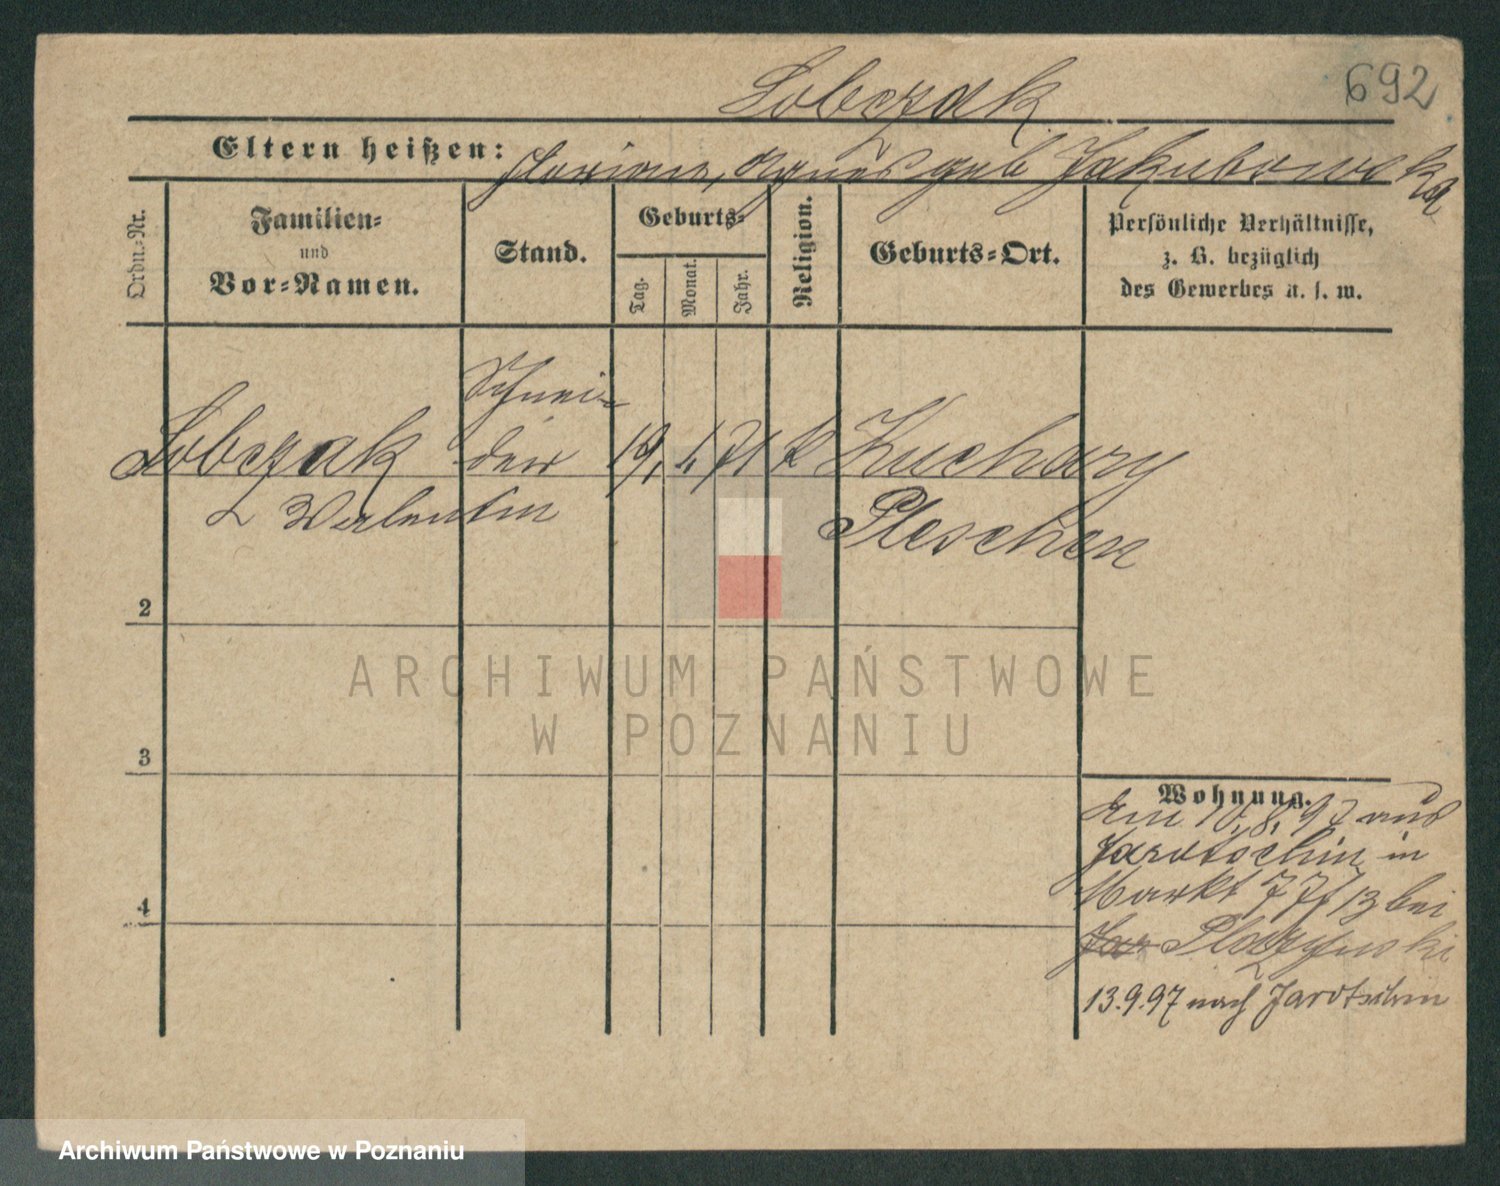 692
Lobczak
Eltern heißen: Florian, Agnes geb Jakubowska
Ordn.-Nr.
Familien-
und
Vor-Namen.
Stand.
Geburts-
Tag.
Monat.
Jahr.
Religion.
Geburts-Ort.
Persönliche Verhältnisse,
z. B. bezüglich
des Gewerbes u. s. w.
Schnei-
Lobczak der 19. 1. 71 k Kuchary
Valentin Pleschen
2
3
4
Wohnung.
10.8.97 aus
Jarotschin in
Markt bei
13.9.97 nach Jarotschin
ARCHIWUM PAŃSTWOWE
W POZNANIU
Archiwum Państwowe w Poznaniu